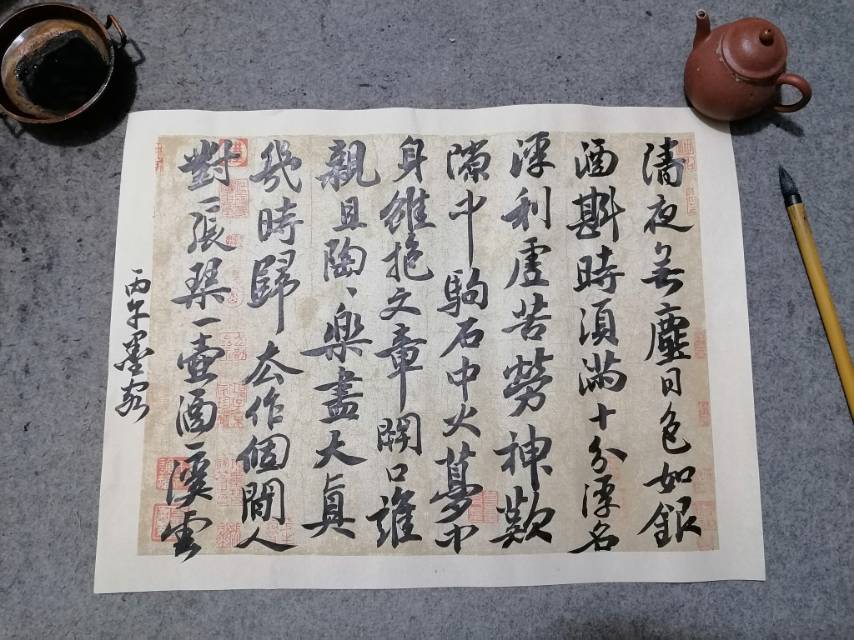 清夜無塵月色如銀
酒斟時須滿十分浮名
浮利虛苦勞神歎
隙中駒石中火夢中
身雖抱文章開口誰
親且陶、樂盡天真
幾時歸去作個閒人
對一張琴一壺酒一溪雲
丙午墨客